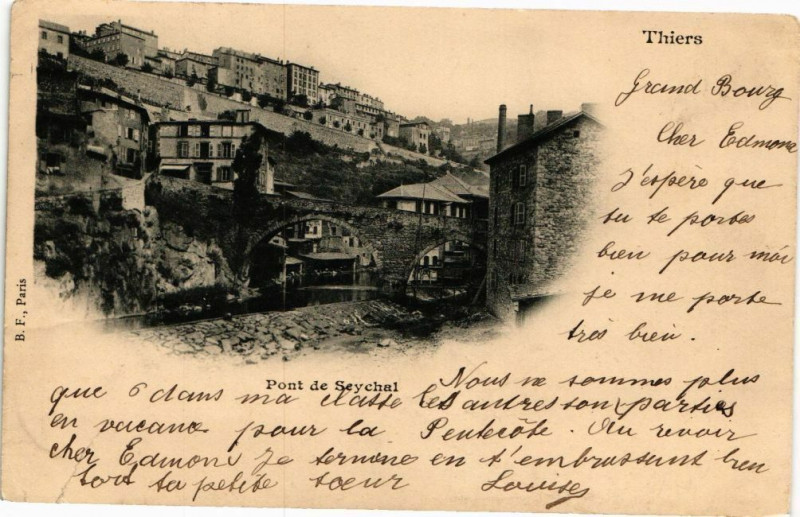 Thiers
Grand Bourg
Cher Edmond
J'espère que
tu te portes
bien pour moi
je me porte
très bien.
B. F., Paris
Pont de Seychal
Nous ne sommes plus
que 6 dans ma classe les autres son parties
en vacance pour la Pentecôte. Au revoir
cher Edmond je termine en t'embrassant bien
fort ta petite sœur Louise